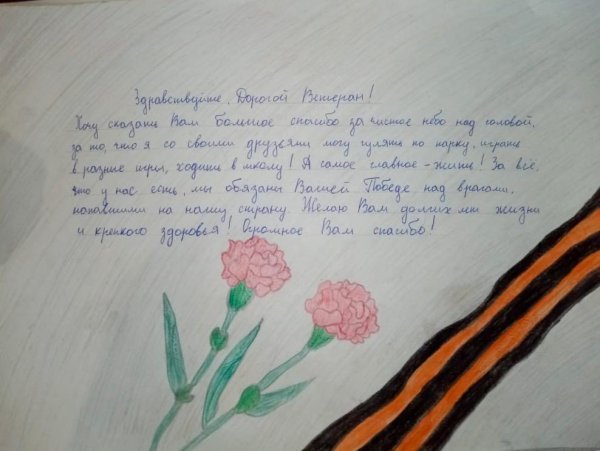 Здравствуйте, Дорогой Ветеран!
Хочу сказать Вам большое спасибо за чистое небо над головой,
за то, что я со своими друзьями могу гулять по парку, играть
в разные игры, ходить в школу! А самое главное - жить! За всё,
что у нас есть, мы обязаны Вашей Победе над врагами,
напавшими на нашу страну. Желаю Вам долгих лет жизни
и крепкого здоровья! Огромное Вам спасибо!